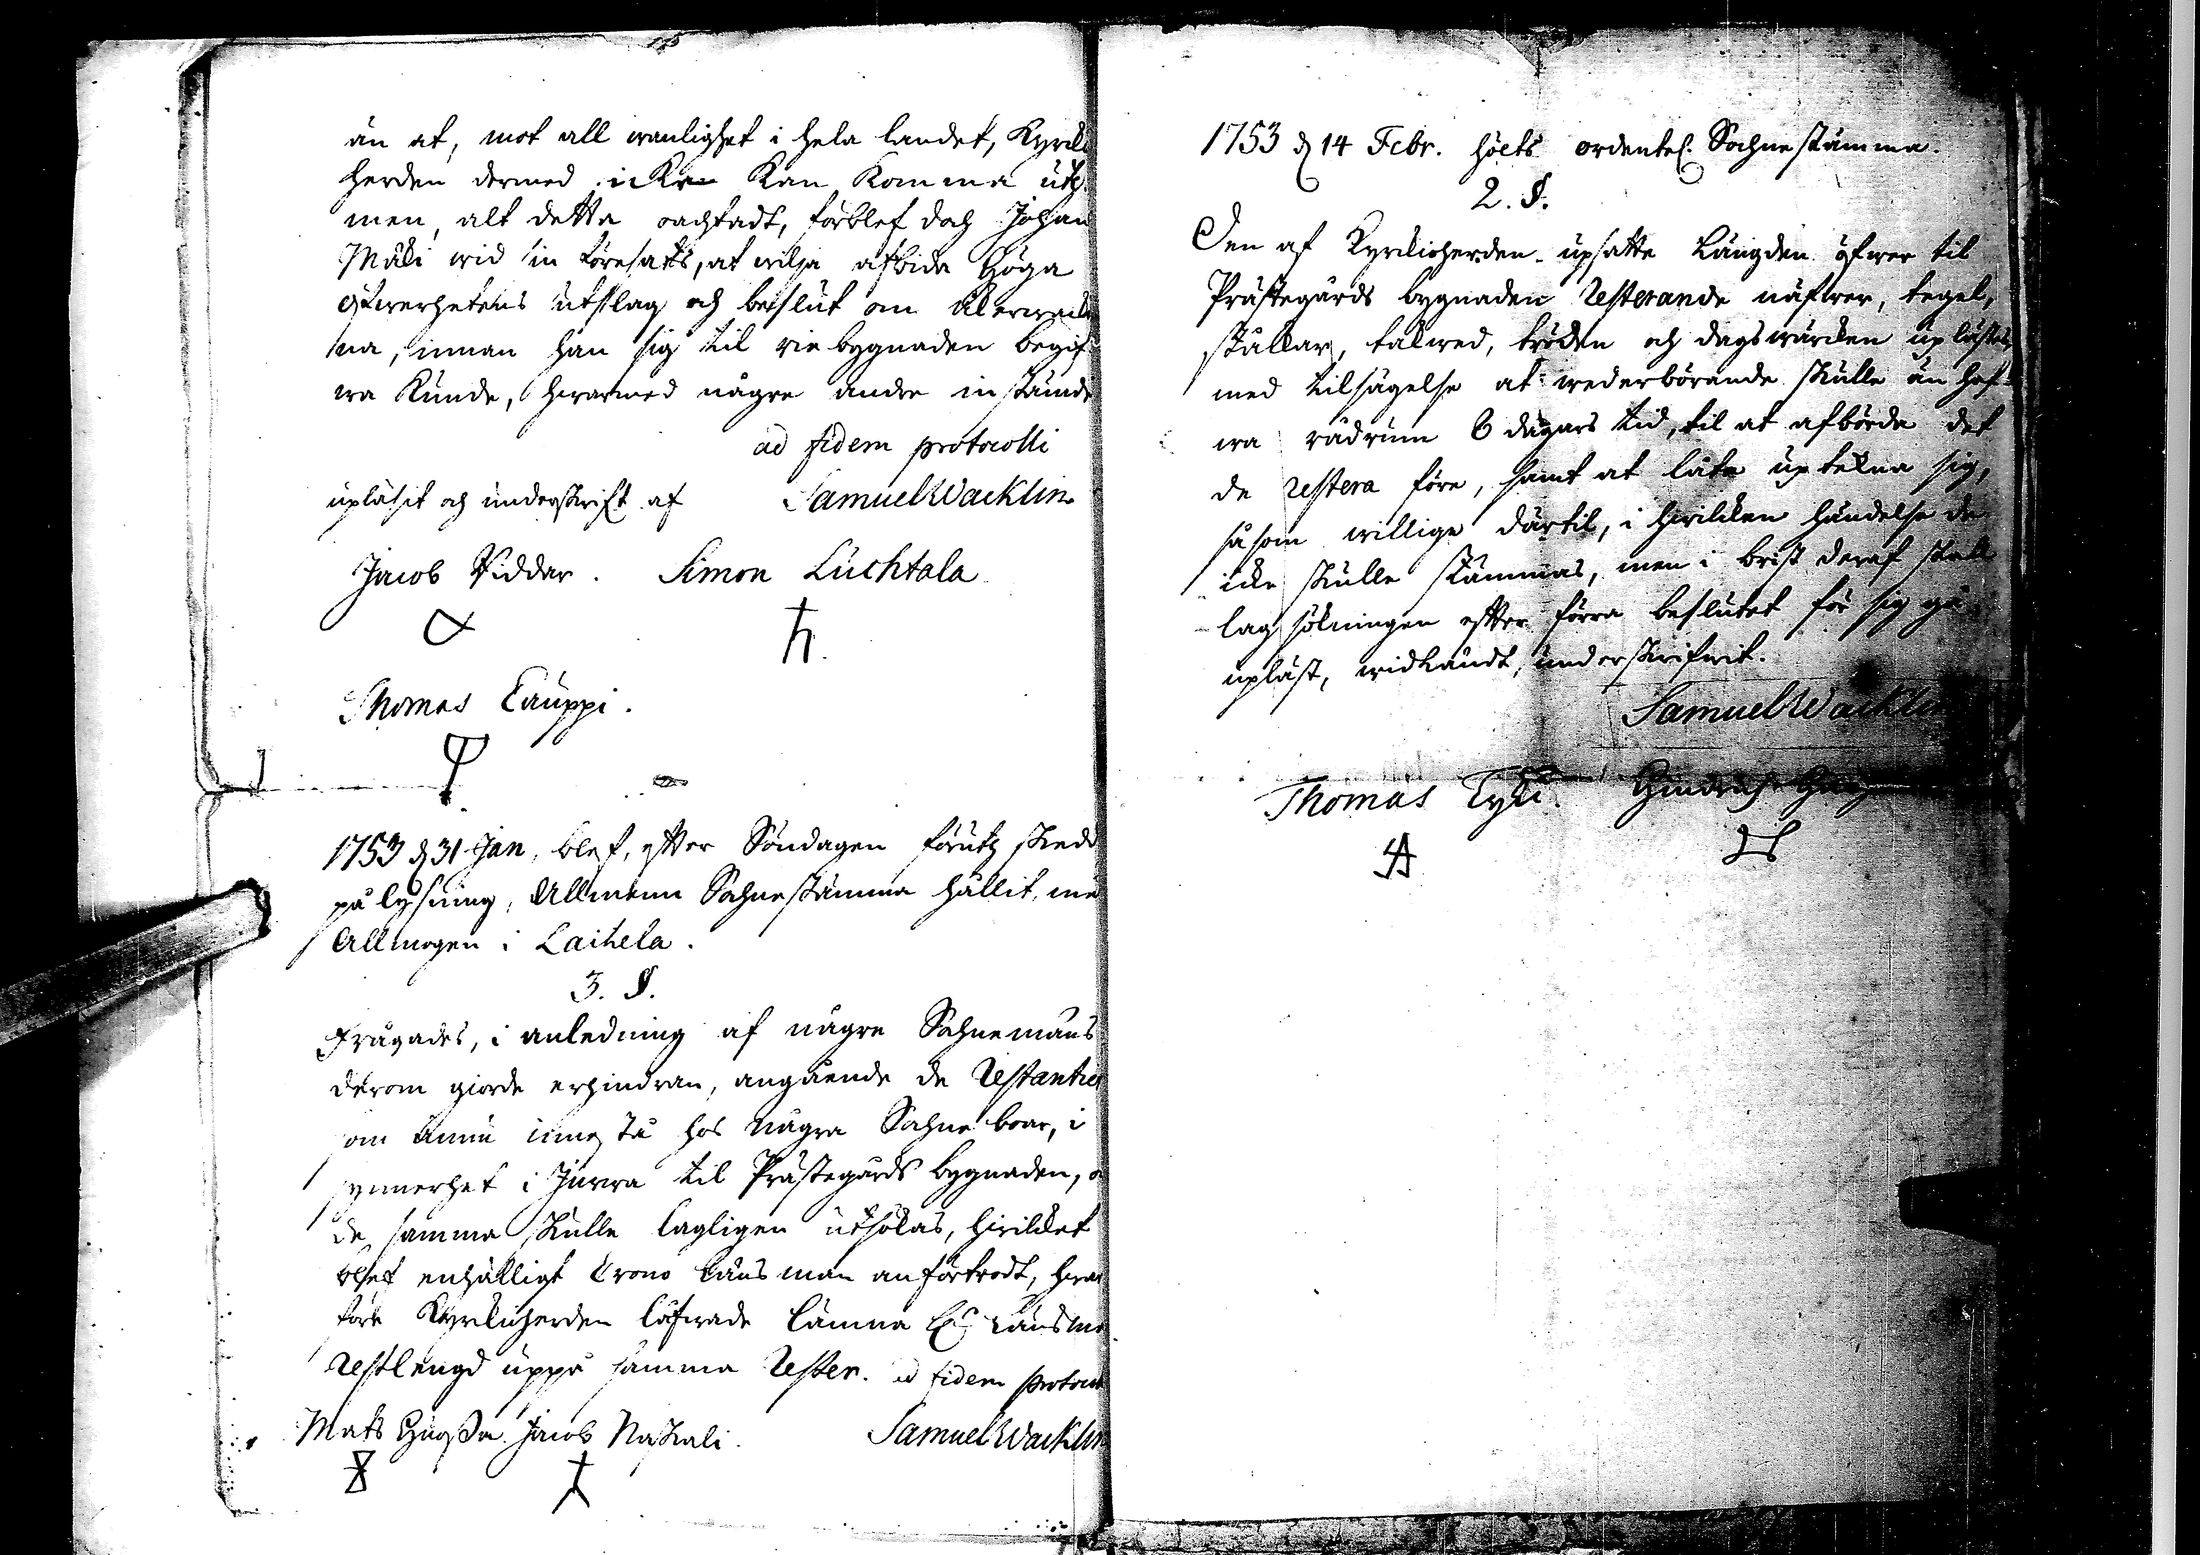 än at, mot all wanlighet i hela landet, Kyrckio
herden dermed icke kan komma uth.
men, alt detta oachtadt, förblef doch Johan
Mäki wid sin föresatts, at wilja afbida Höga
Öfwerhetens utslag och beslut om
na, innan han sig til rie bygnaden begif-
wa kunde, hwarmed någre andre instämde
ad fidem protocolli
upläsit och underskrift af Samuel Wacklin
Jacob Riddar. Simon Luchtala
Thomas Cauppi.
1753 d. 31 Jan, blef, efter Söndagen förut skedd
pålysning, Allmenn Sochnestämma hållit, med
Allmogen i Laihela.
3. §.
Frågades, i anledning af någre Sochnemäns
derom giorde erhindran, angående de Restantier
som ännu innestå hos några Sochneboar, i
synnerhet i Jurva til Prästegårds bygnaden, o
de samma skulle lagligen utsökas, hwilcket
blef enhälligt Crono Länsman anförtrodt, hwar
före Kyrckioherden låfwade lämna Länsman
Restlengd uppå samma Rester. ad fidem protocolli
Mats Jacob Naskali. Samuel Wacklin
1753 d. 14 Febr. hölts ordentel. Sochnestämma.
2. §.
Den af Kyrckioherden upsatte Längden öfwer til
Prästegårds bygnaden Resterande näfwer, tegel,
ställar, takwed, bröden och dagswärcken uplästes,
med tilsägelse at wederbörande skulle än haf-
wa rådrum 6 dagars tid, til at afbörda det
de Restera före, samt at låta uptekna sig,
såsom willige därtil, i hwilcken händelse de
icke skulle stämmas, men i brist deraf skall
lagsökningen efter förra beslutet för sig gå.
upläst, widkändt, underskrifwit.
Samuel Wacklin
Thomas Hindrich